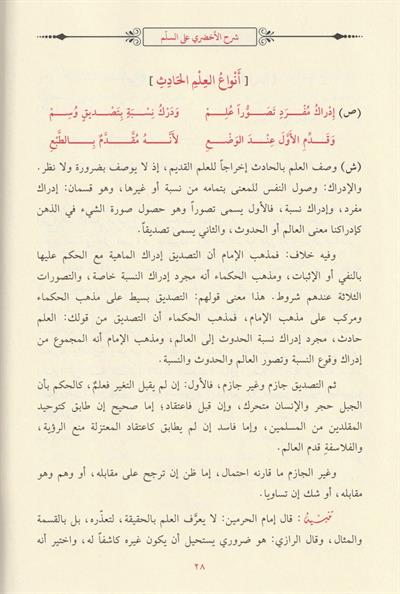 شرح الأخضري على السلّم
[ أَنْوَاعُ العِلْمِ الحَادِثِ ]
(ص) إِدْرَاكُ مُفْرَدٍ تَصَوُّراً عُلِمْ وَدَرْكُ نِسْبَةٍ بِتَصْدِيقٍ وُسِمْ
وَقَدِّمِ الأَوَّلَ عِنْدَ الوَضْعِ لأَنَّهُ مُقَدَّمٌ بِالطَّبْعِ
(ش) وصف العلم بالحادث إخراجاً للعلم القديم، إذ لا يوصف بضرورة ولا نظر.
والإدراك: وصول النفس للمعنى بتمامه من نسبة أو غيرها، وهو قسمان: إدراك
مفرد، وإدراك نسبة، فالأول يسمى تصوراً وهو حصول صورة الشيء في الذهن
كإدراكنا معنى العالم أو الحدوث، والثاني يسمى تصديقاً.
وفيه خلاف: فمذهب الإمام أن التصديق إدراك الماهية مع الحكم عليها
بالنفي أو الإثبات، ومذهب الحكماء أنه مجرد إدراك النسبة خاصة، والتصورات
الثلاثة عندهم شروط. هذا معنى قولهم: التصديق بسيط على مذهب الحكماء
ومركب على مذهب الإمام، فمذهب الحكماء أن التصديق من قولك: العلم
حادث، مجرد إدراك نسبة الحدوث إلى العالم، ومذهب الإمام أنه المجموع من
إدراك وقوع النسبة وتصور العالم والحدوث والنسبة.
ثم التصديق جازم وغير جازم، فالأول: إن لم يقبل التغير فعلمٌ، كالحكم بأن
الجبل حجر والإنسان متحرك، وإن قبل فاعتقاد؛ إما صحيح إن طابق كتوحيد
المقلدين من المسلمين، وإما فاسد إن لم يطابق كاعتقاد المعتزلة منع الرؤية،
والفلاسفةِ قدم العالم.
وغير الجازم ما قارنه احتمال، إما ظن إن ترجح على مقابله، أو وهم وهو
مقابله، أو شك إن تساويا.
تنبيه: قال إمام الحرمين: لا يعرَّف العلم بالحقيقة، لتعذّره، بل بالقسمة
والمثال، وقال الرازي: هو ضروري يستحيل أن يكون غيره كاشفاً له، واختير أنه
٢٨